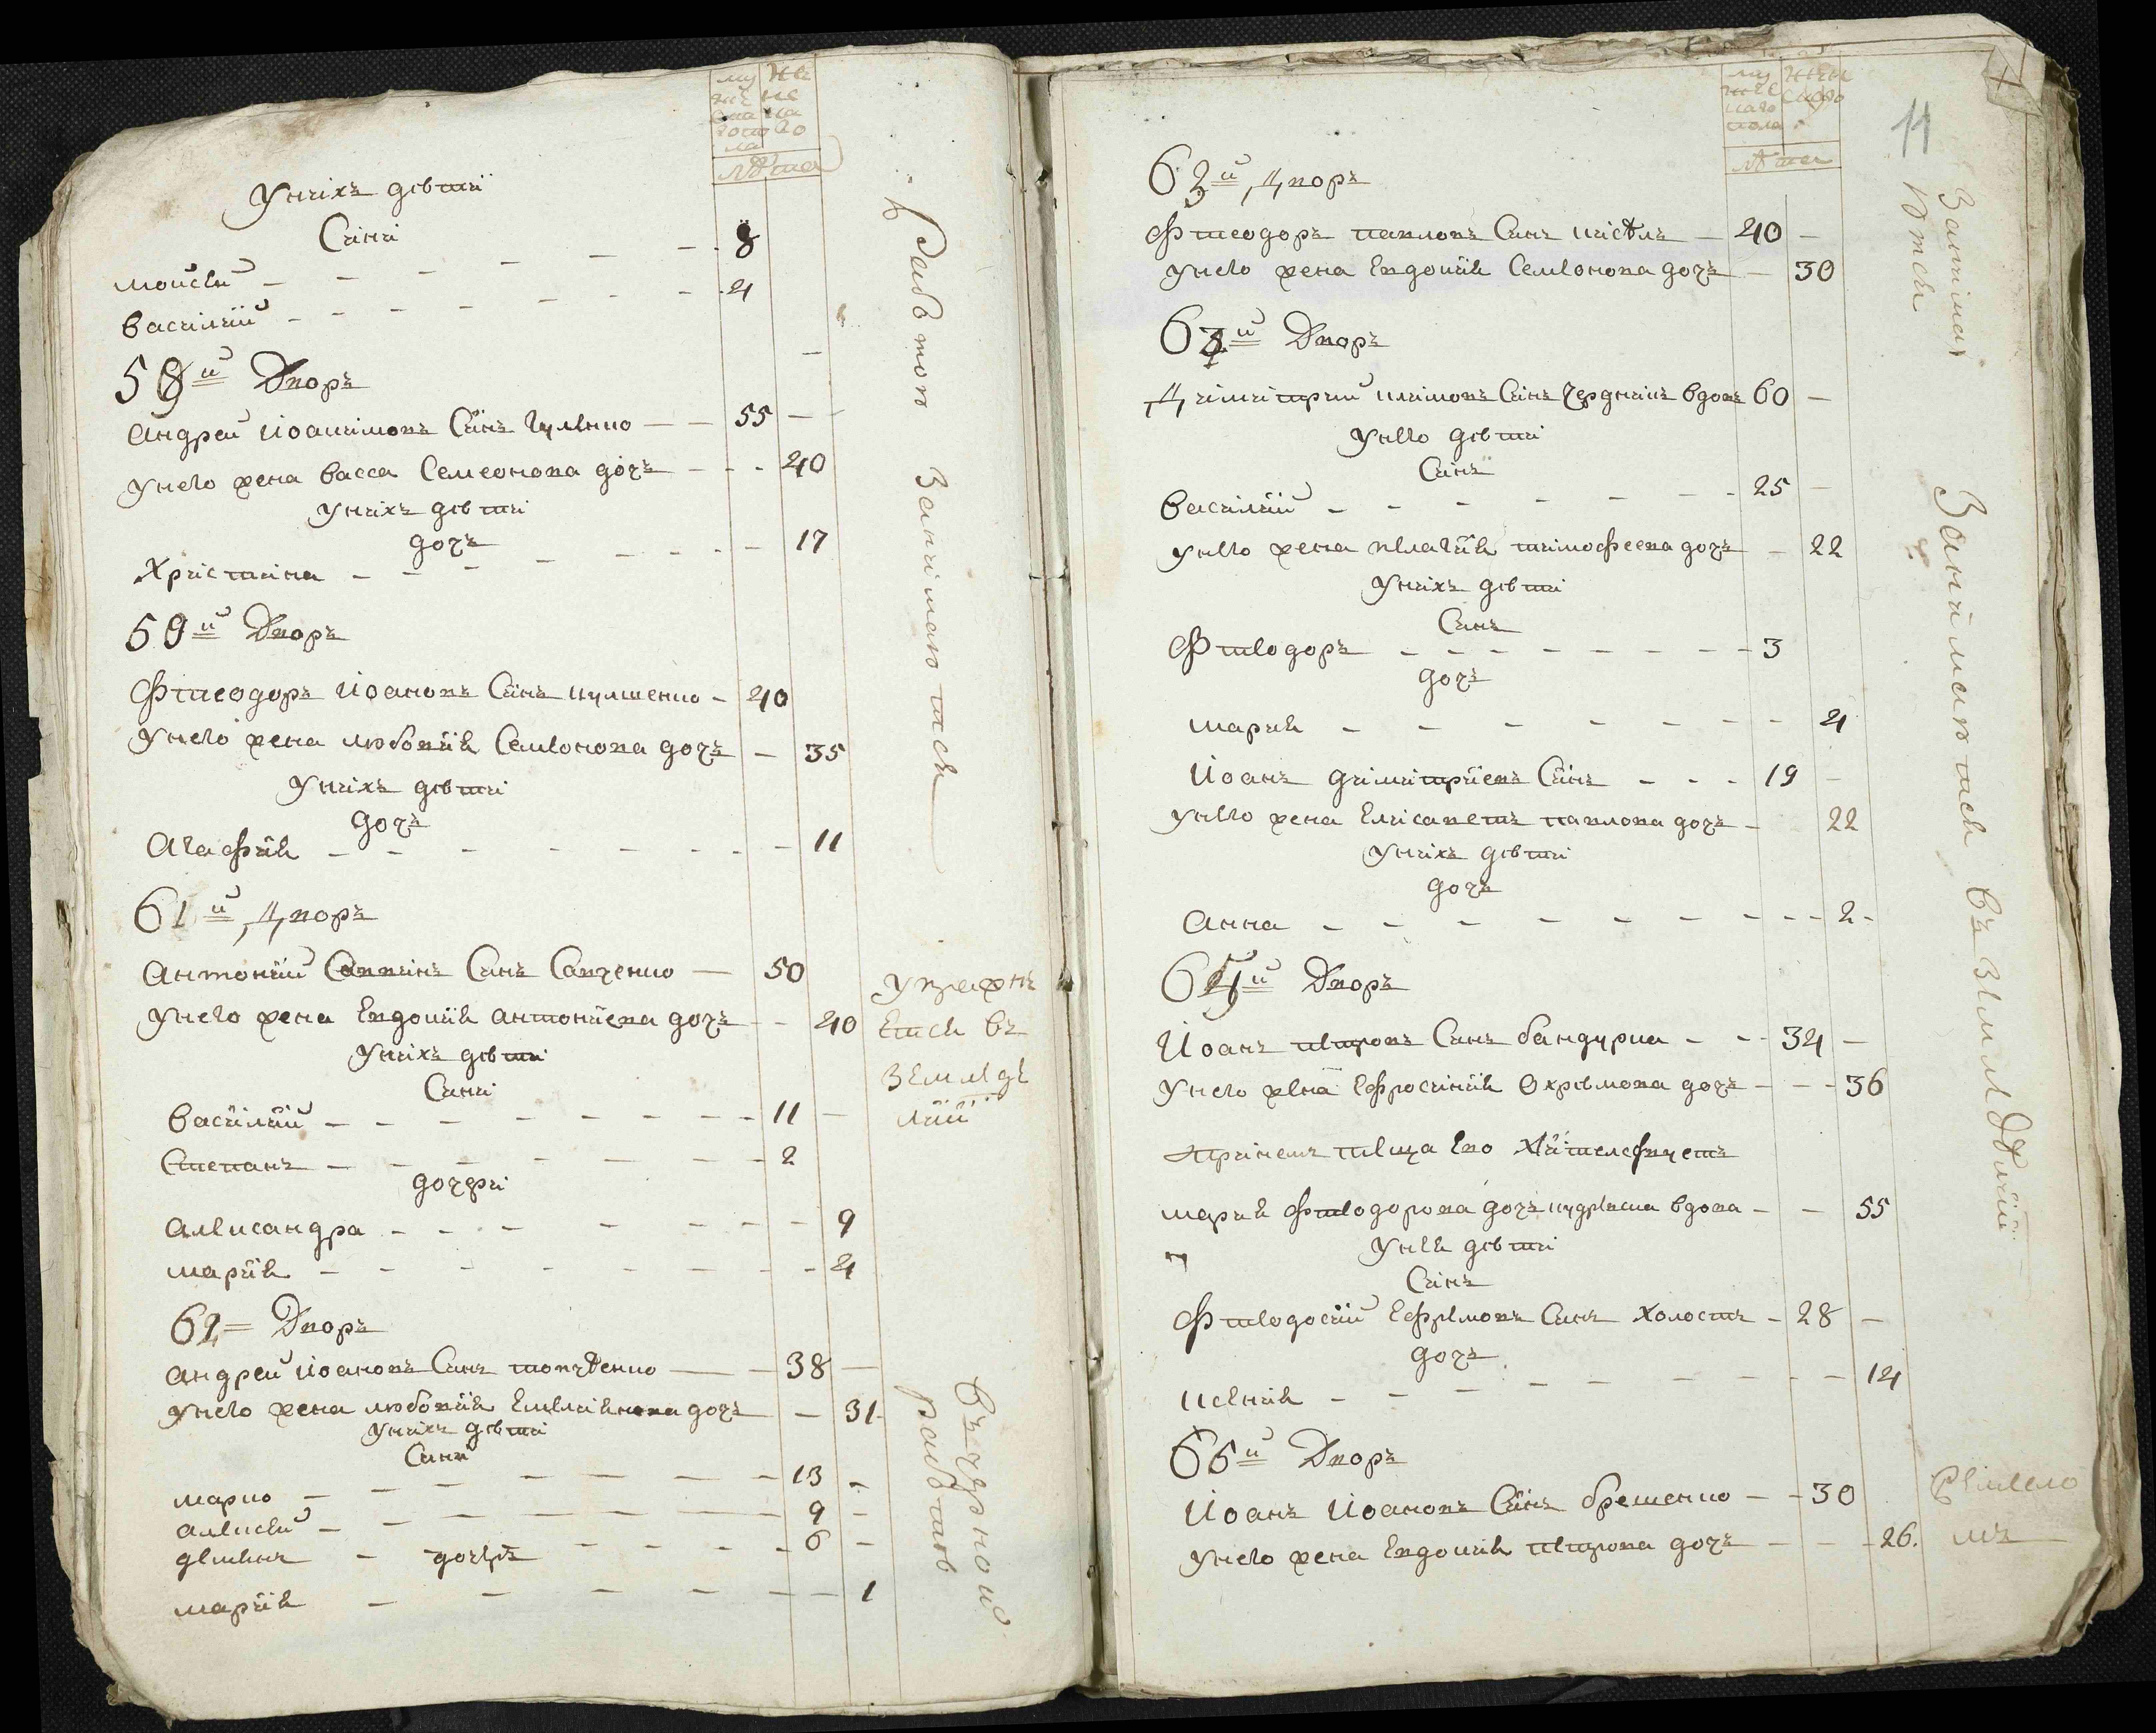 муженска пола
лѣта
Унихъ дѣти
Сини
Моисей 8
Василий 4
58й Дворъ
Андрей Иоакимовъ Синъ Гуленко 55
Унего жена Васса Семеонова дочъ 40
Унихъ дѣти
дочъ
Христина 17
59й Дворъ
Фтеодоръ Иоановъ Синъ кулшенко 40
Унего жена любовия Семионова дочъ 35
Унихъ дѣти
дочъ
Агафия 11
61й Дворъ
Антоний Саввинъ Синъ Савченко 50
Унего жена Евдокия антониева дочъ 40
Унихъ дѣти
Сини
Василий 11
Степанъ 2
дочери
Александра 9
Мария 4
62 Дворъ
Андрей Иоановъ Синъ товчѣенко 38
Унего жена любовия Емелиянова дочъ 31
Унихъ дѣти
Сини
Марко 13
Алексей 9
демянъ 6
дочерѣ
Мария 1
работою Занимаютися
Упражняется въ земледелии
въ чорной работѣ
11
лѣта
63й Дворъ
Фтеодоръ павловъ Синъ 40
Унего жена Евдокия Семионова дочъ 30
63й Дворъ
Димитрий климовъ Синъ Чередникъ вдовъ 60
Унего дѣти
Синъ
Василий 25
Унего жена пелагия тимофеева дочъ 22
Унихъ дѣти
Синъ
Фтеодоръ 3
дочъ
Мария 4
Иоанъ димитриевъ Синъ 19
Унего жена Елисаветъ павлова дочъ 22
Унихъ дѣти
дочъ
Анна 2
64й Дворъ
Иоанъ петровъ Синъ бандурка 34
Унего жена Ефросиния Охрѣмова дочъ 36
принемъ теща Ево жительствуетъ
Мария Фтеодорова дочъ кудрѣвска вдова 55
Унея дѣти
Синъ
Фтеодосий Ефремовъ Синъ холостъ 28
дочъ
Ксения 14
66й Дворъ
Иоанъ Иоановъ Синъ брешенко 30
Унего жена Евдокия петрова дочъ 26
Занимаются
Занимаютися въ Земледѣлии
Ремесло
мъ